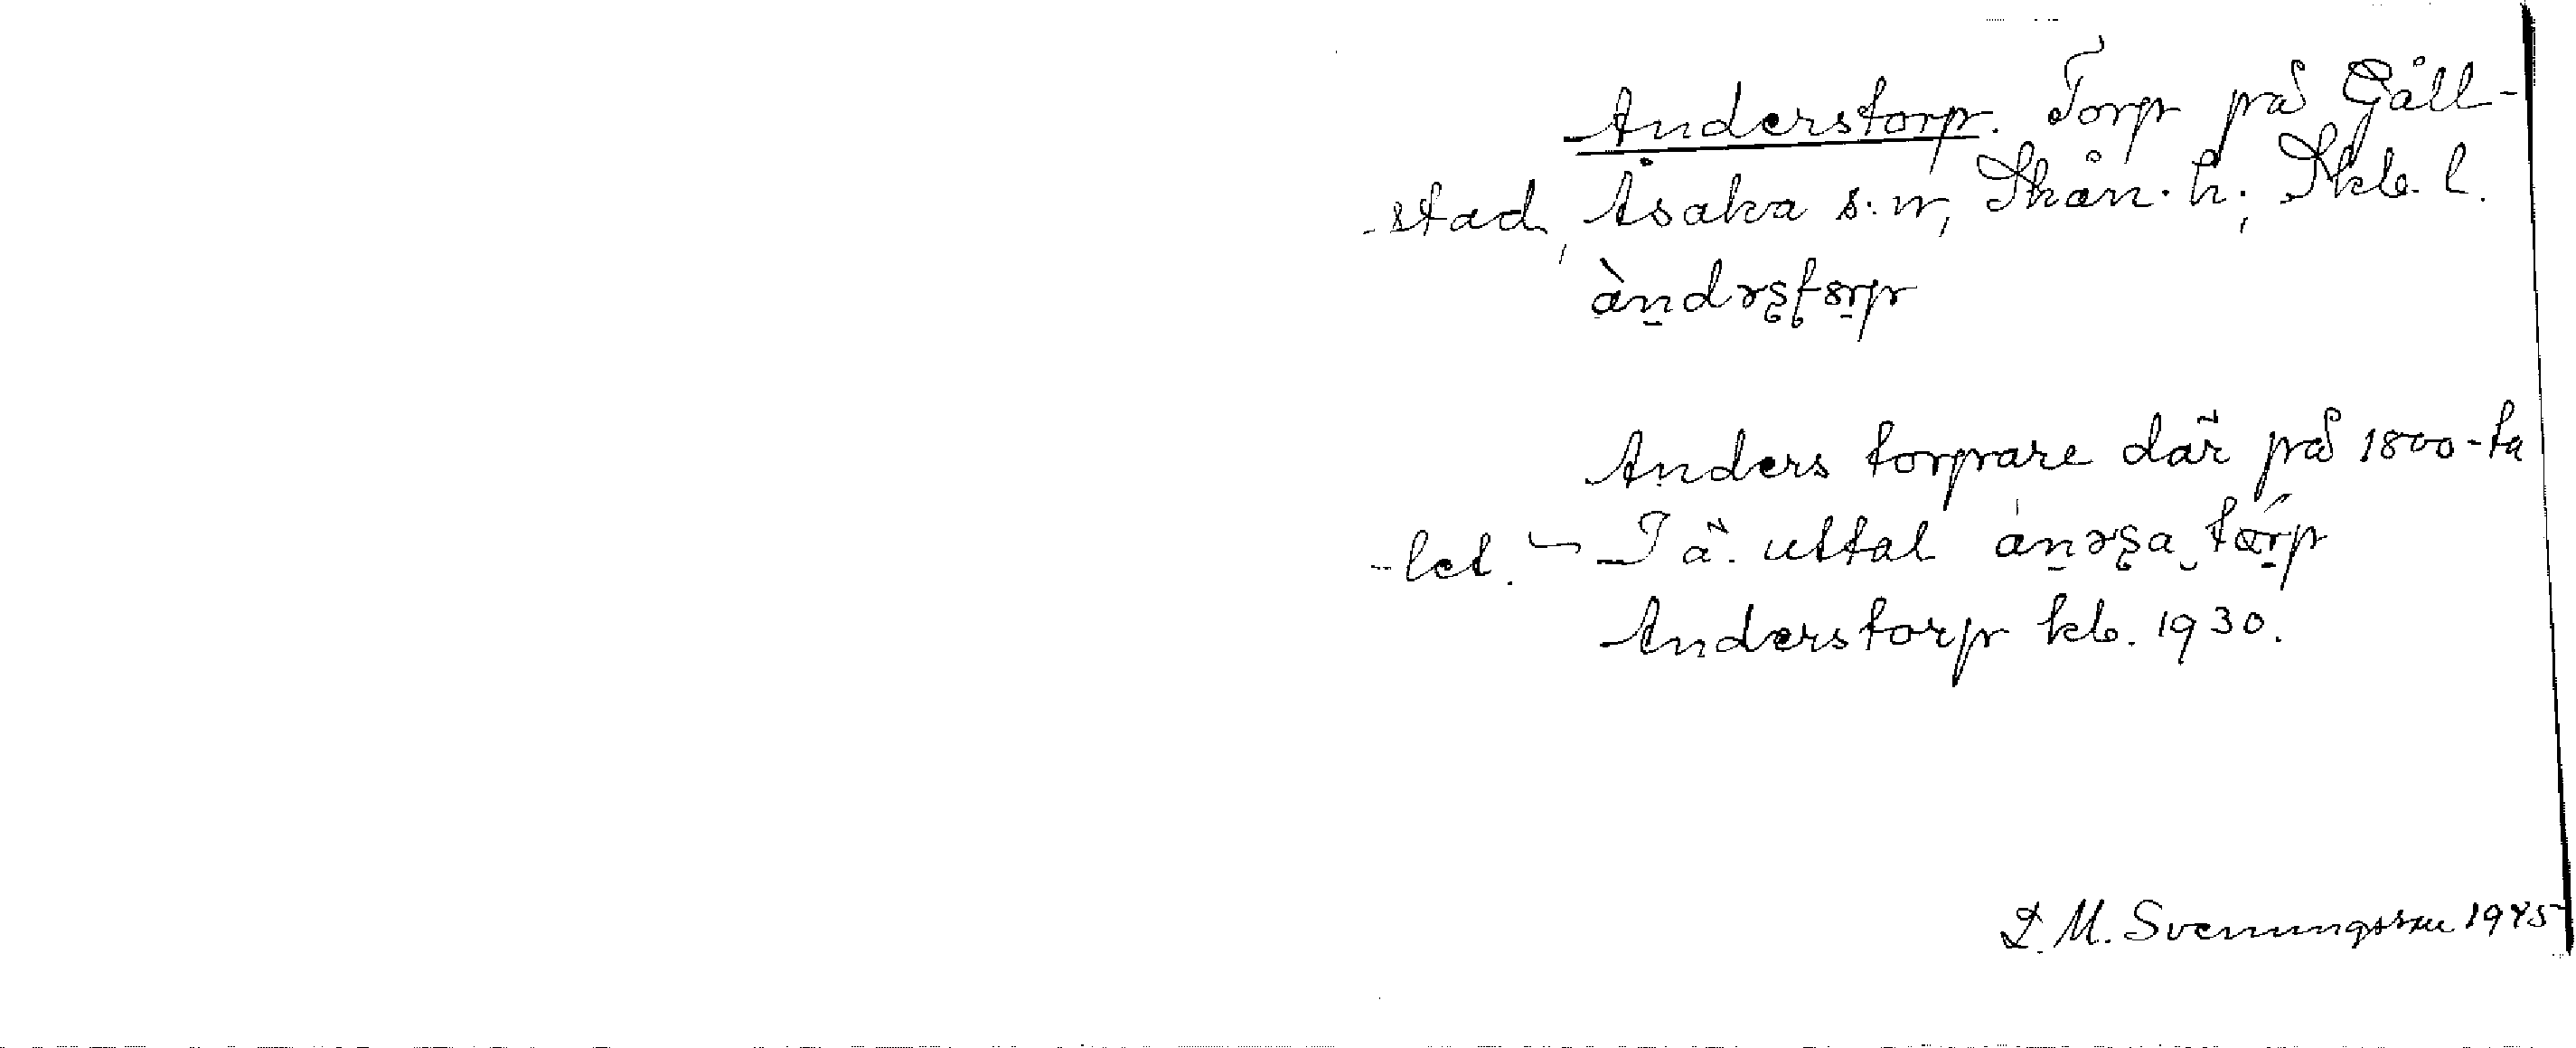 Anderstorp. Torp på Gåll-
-stad, Åsaka s:n, Skån. h., Skb. l.
àn̠dərʂʈɔr̠p
Anders torpare där på 1800-ta
-let. – I ä. uttal
Anderstorp kb. 1930.
L. M. Svenungsson 1945